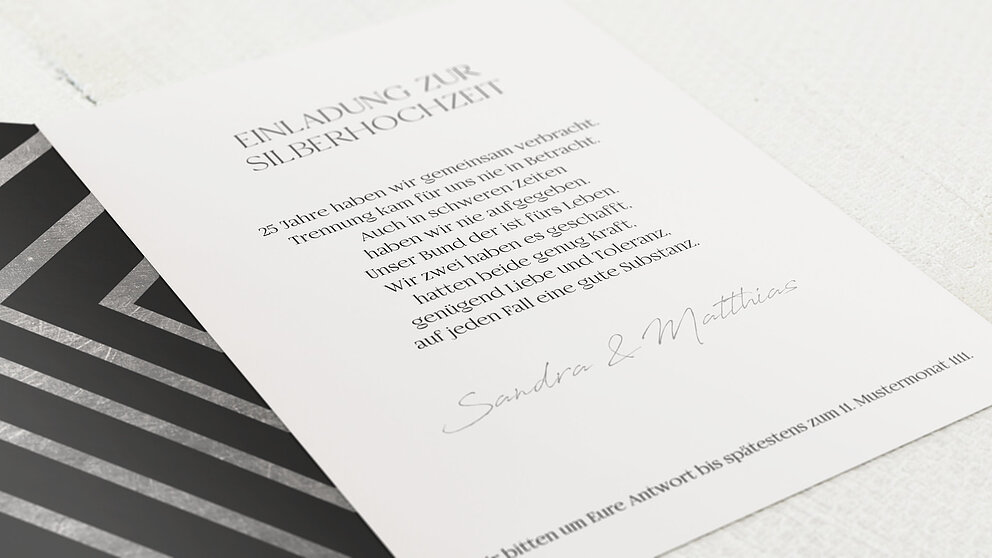 EINLADUNG ZUR
SILBERHOCHZEIT
25 Jahre haben wir gemeinsam verbracht.
Trennung kam für uns nie in Betracht.
Auch in schweren Zeiten
haben wir nie aufgegeben.
Unser Bund der ist fürs Leben.
Wir zwei haben es geschafft,
hatten beide genug Kraft,
genügend Liebe und Toleranz,
auf jeden Fall eine gute Substanz.
Sandra & Matthias
bitten um Eure Antwort bis spätestens zum 11. Mustermonat 1111.